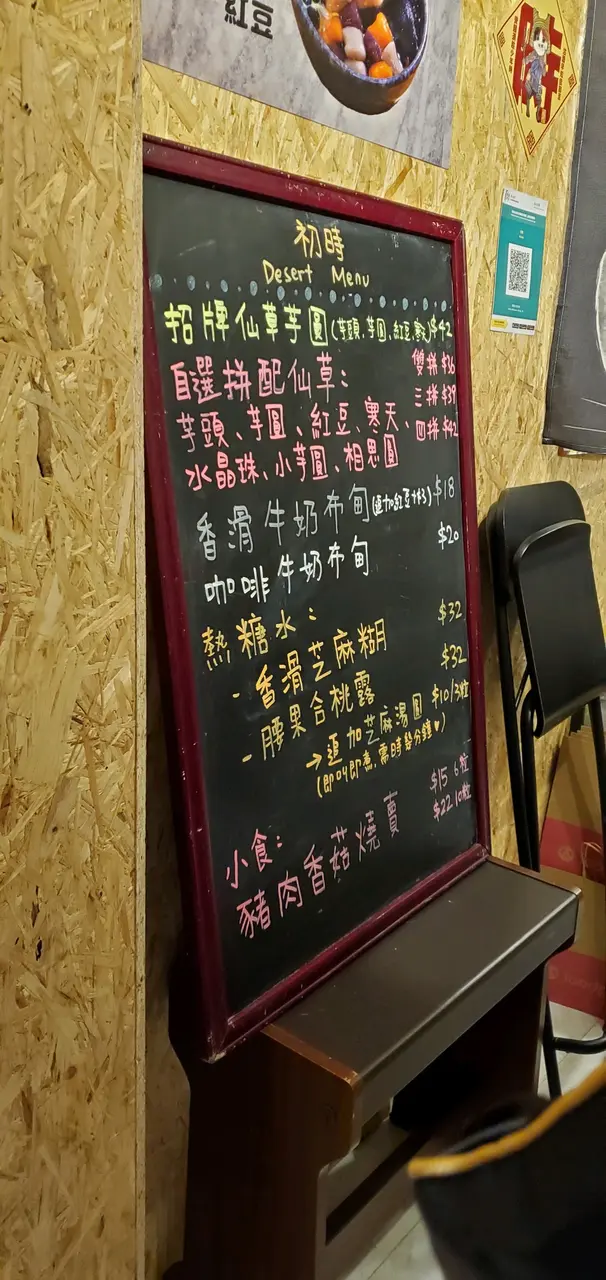 紅豆
初時
Desert Menu
招牌仙草芋圓(芋頭、芋圓、紅豆、 $42
自選拼配仙草: 雙拼 $36
三拼 $39
芋頭、芋圓、紅豆、寒天、 四拼 $42
水晶珠、小芋圓、相思圓
香滑牛奶布甸(追加紅豆+$3) $18
咖啡牛奶布甸 $20
熱糖水:
- 香滑芝麻糊 $32
- 腰果合桃露 $32
→追加芝麻湯圓 $10/3粒
(即叫即煮,需時 分鐘♥)
小食: $15 6粒
豬肉香菇燒賣 $22 10粒